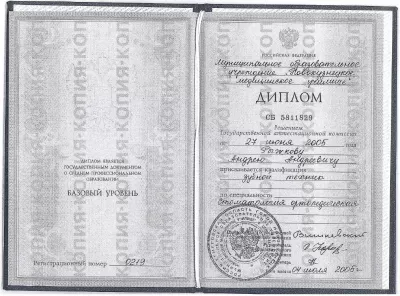 ДИПЛОМ ЯВЛЯЕТСЯ
ГОСУДАРСТВЕННЫМ ДОКУМЕНТОМ
О СРЕДНЕМ ПРОФЕССИОНАЛЬНОМ
ОБРАЗОВАНИИ
БАЗОВЫЙ УРОВЕНЬ
Регистрационный номер 0219
РОССИЙСКАЯ ФЕДЕРАЦИЯ
Муниципальное образовательное
учреждение "Новокузнецкое
медицинское училище"
ДИПЛОМ
СБ 5811829
Решением
Государственной аттестационной комиссии
от 27 июня 2005 года
Рыжкову
Андрею Андреевичу
присваивается квалификация
зубной техник
по специальности
стоматология ортопедическая
04 июля 2005 г.
КОПИЯ-КОПИЯ-КОПИЯ